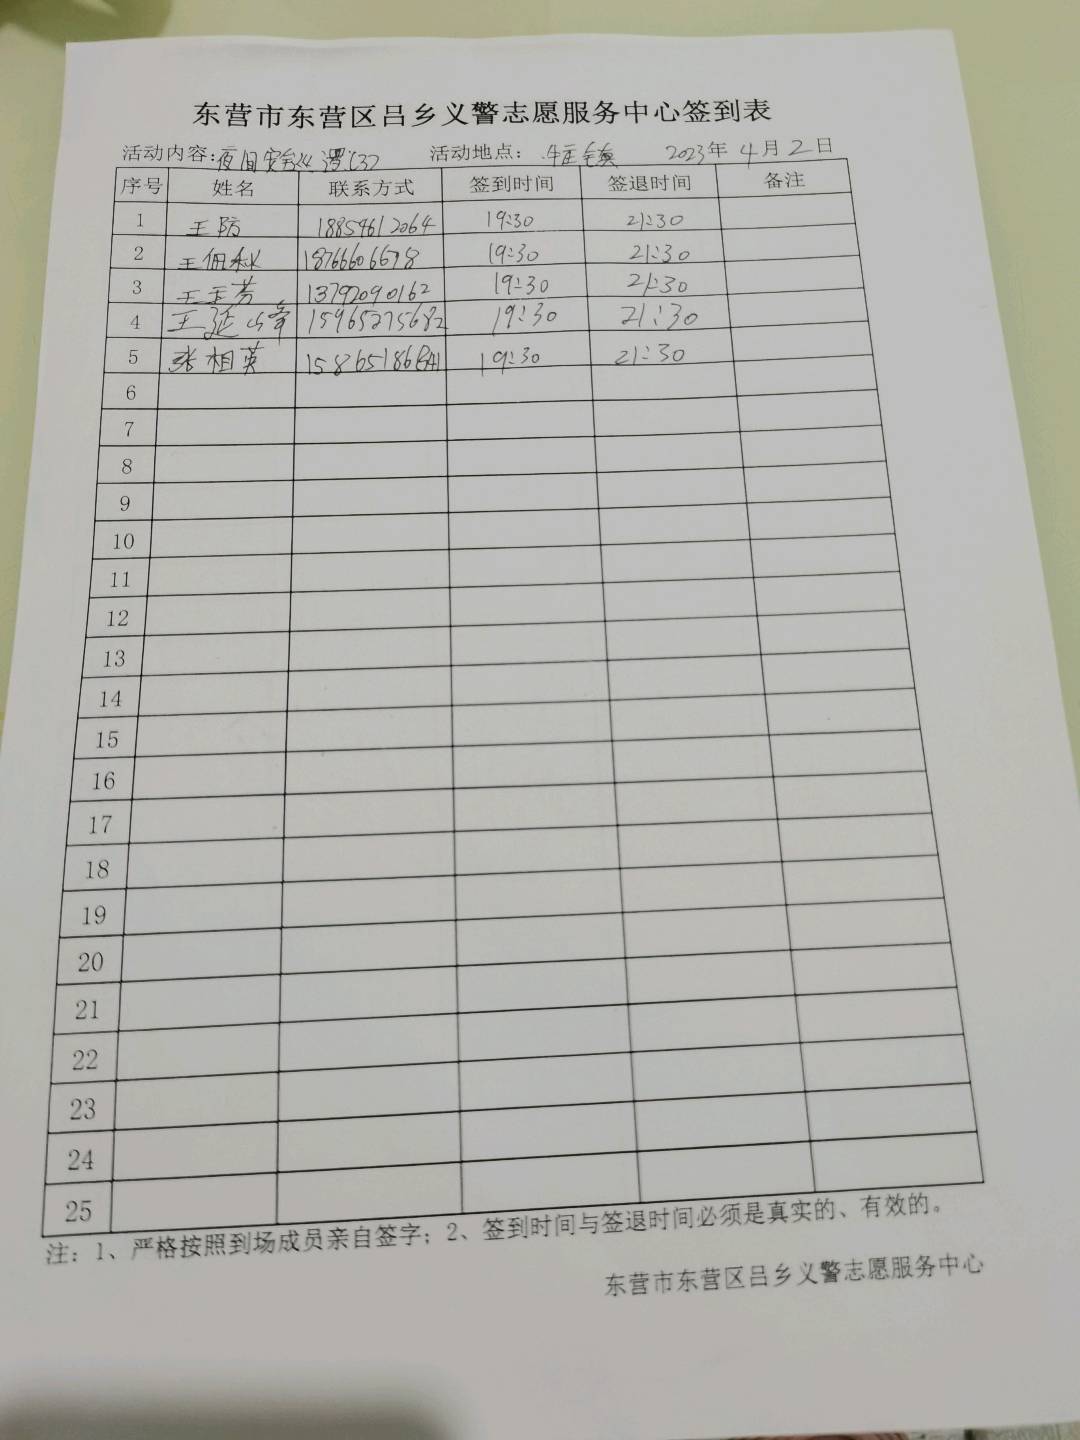 东营市东营区吕乡义警志愿服务中心签到表
活动内容:夜间安全巡逻 活动地点: 牛庄镇 2023年4月2日
序号 姓名 联系方式 签到时间 签退时间 备注
1 王防 18854612064 19:30 21:30
2 王佃秋 19:30 21:30
3 王玉芳 13792090162 19:30 21:30
4 王延峰 15965275682 19:30 21:30
5 张相英 19:30 21:30
6
7
8
9
10
11
12
13
14
15
16
17
18
19
20
21
22
23
24
25
注：1、严格按照到场成员亲自签字；2、签到时间与签退时间必须是真实的、有效的。
东营市东营区吕乡义警志愿服务中心